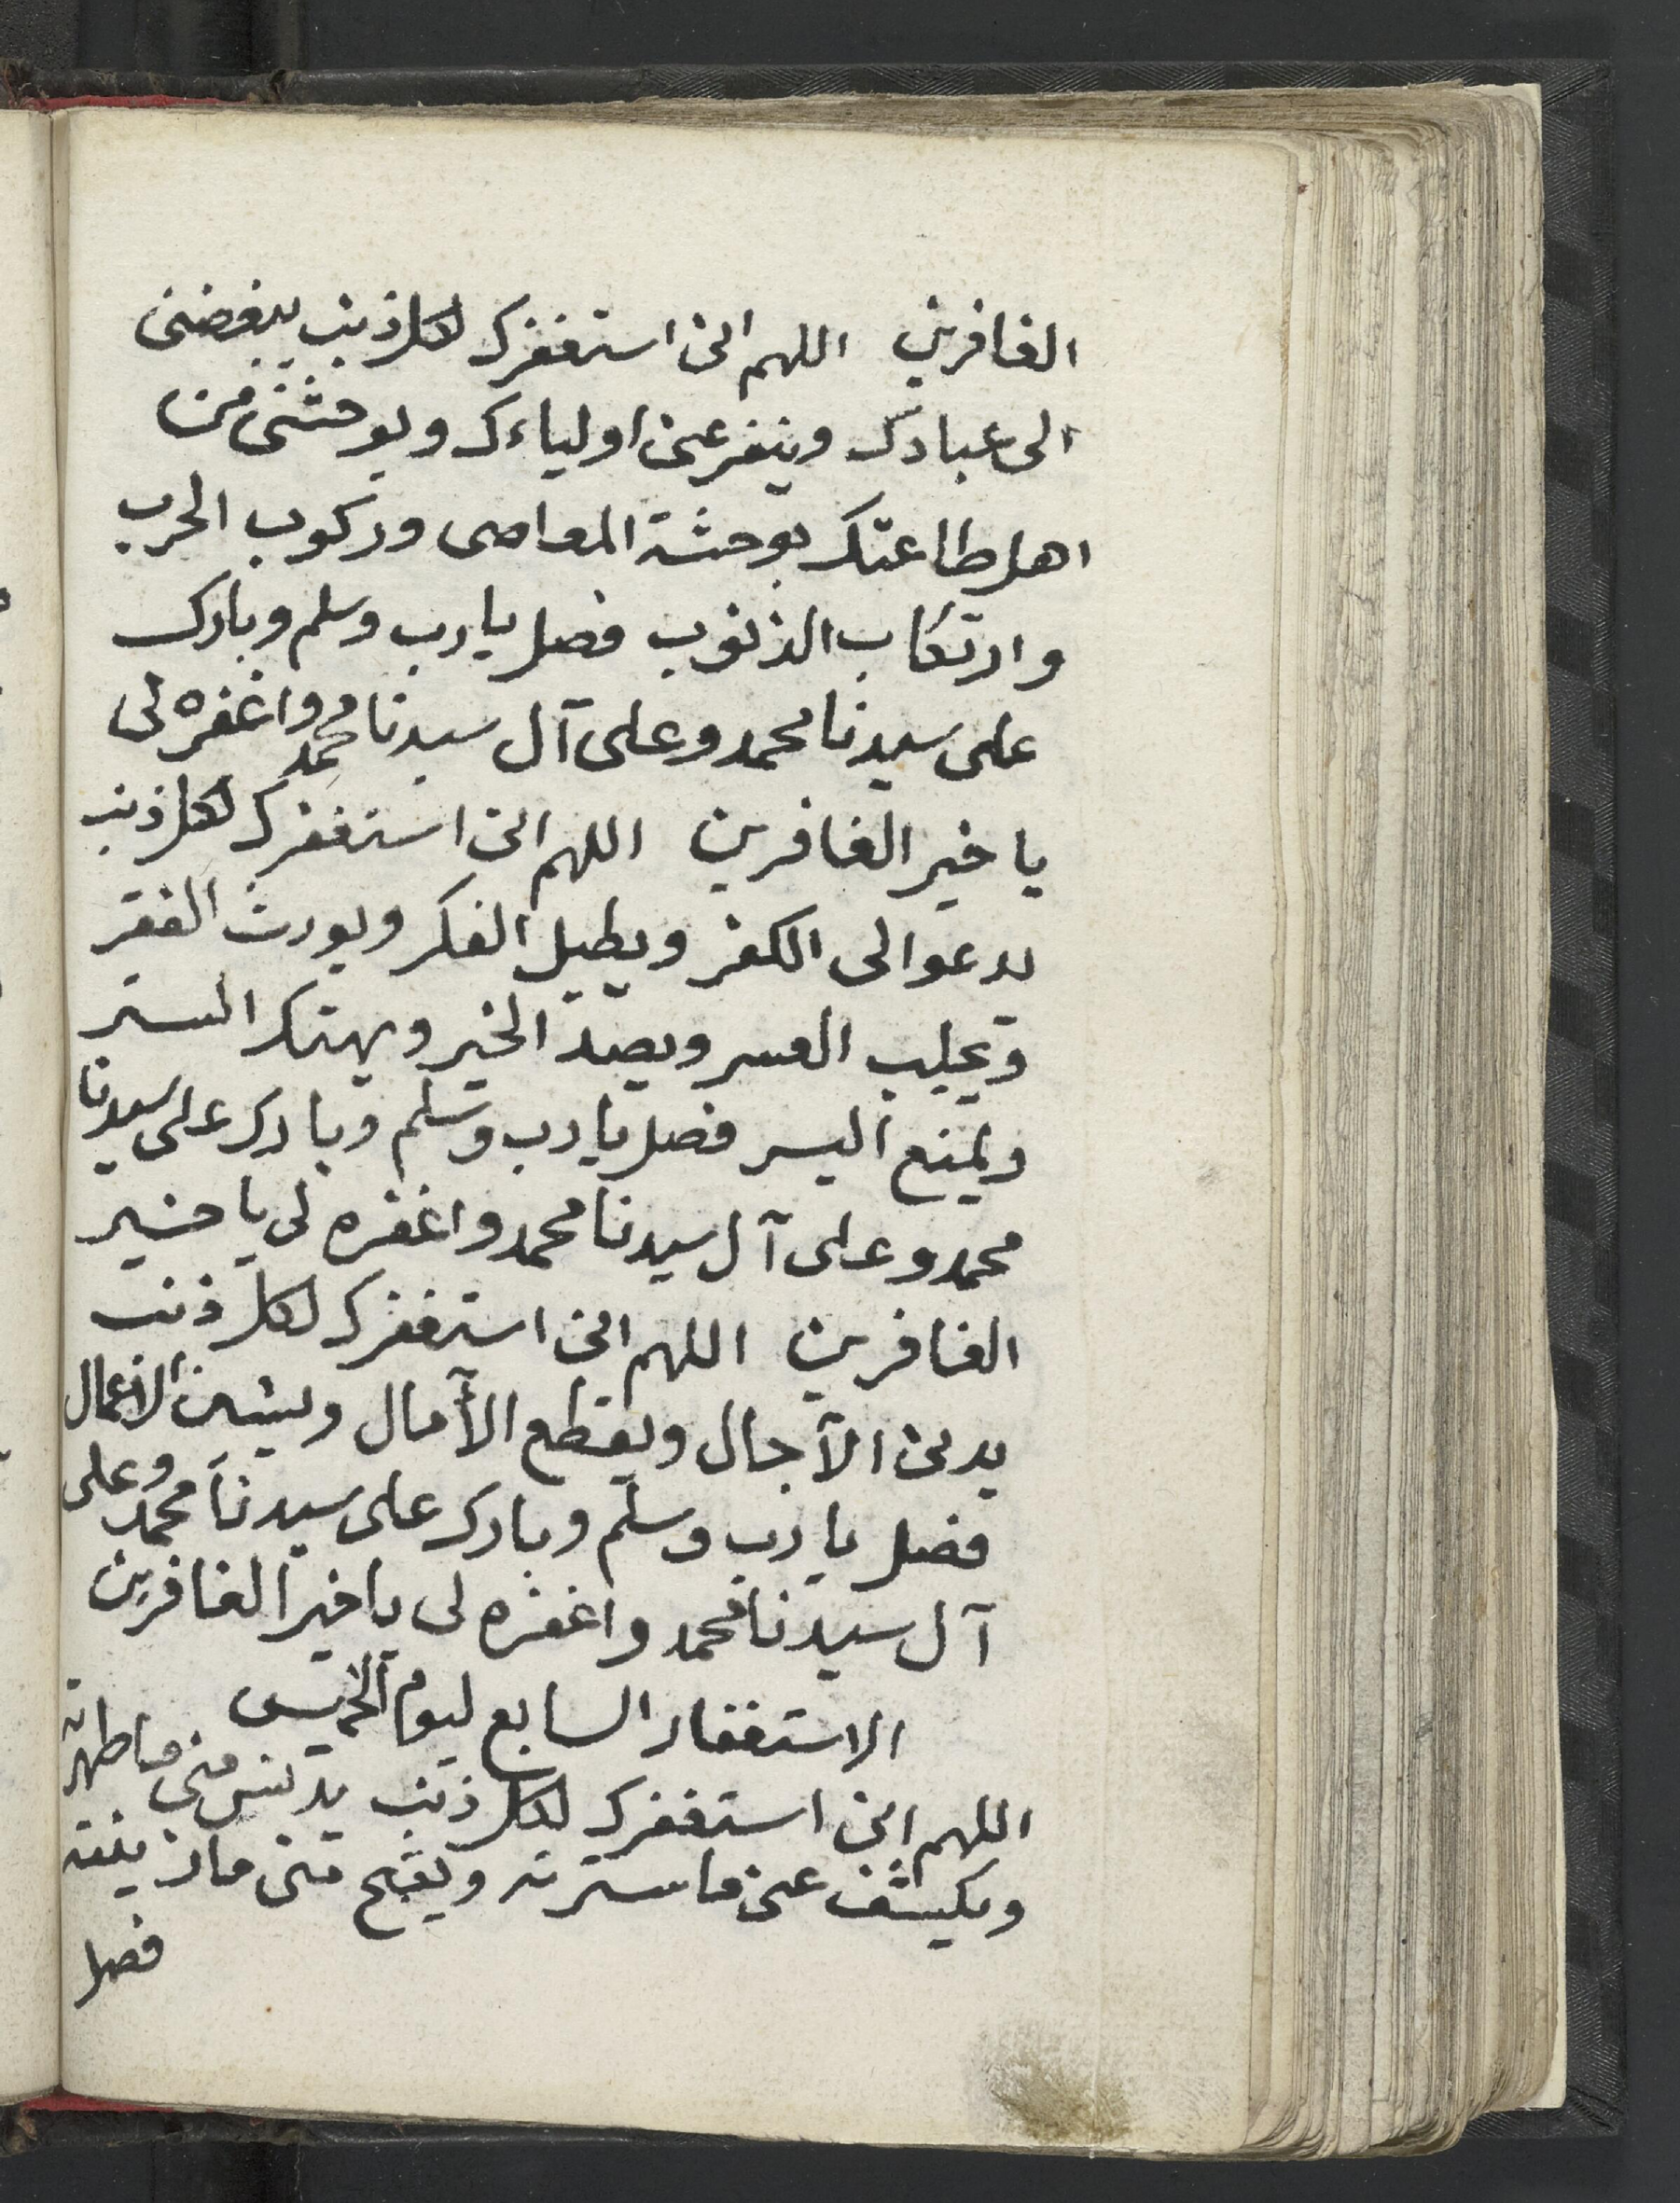 الغافرين اللهم انى استغفرك لكل ذنب يبغضنى
الى عبادك وينفر عنى اولياءك ويوحشنى من
اهل طاعتك بوحشة المعاصى وركوب الحرب
وارتكاب الذنوب فصل يا رب وسلم وبارك
على سيدنا محمد وعلى آل سيدنا محمد واغفره لى
يا خير الغافرين اللهم انى استغفرك لكل ذنب
يدعوالى الكفر ويطيل الفكر ويورث الفقر
ويجلب العسر ويصد الخير ويهتك الستر
ويمنع اليسر فصل يا رب وسلم وبارك على سيدنا
محمد وعلى آل سيدنا محمد واغفره لى يا خير
الغافرين اللهم انى استغفرك لكل ذنب
يدنى الآجال ويقطع الآمال ويشين الاعمال
فصل يا رب وسلم وبارك على سيدنا محمد وعلى
آل سيدنا محمد واغفره لى يا خير الغافرين
الاستغفار السابع ليوم الخميس
اللهم انى استغفرك لكل ذنب يدنس منى ما طهرته
ويكشف عنى ما سترته ويقبح منى ما زينته
فصل